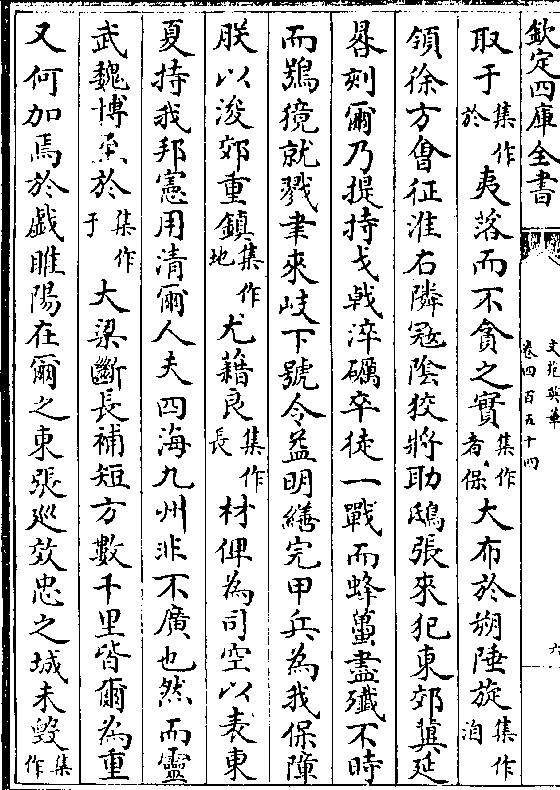 欽定四庫全書
文苑英華
卷四百五十四
六
取于集作於夷落而不貪之實集作者保大布於朔陲旋集作洎
領徐方會征淮右隣冦陰狡將助鴟張來犯東郊冀延
晷刻爾乃提持戈㦸淬礪卒徒一戰而蜂蠆盡殲不時
而鶚獍就戮聿來岐下號令益明繕完甲兵為我保障
朕以浚郊重鎮集作地尤藉良集作長材俾為司空以表東
夏持我邦憲用清爾人夫四海九州非不廣也然而靈
武魏博洎於集作于大梁斷長補短方數千里皆爾為重
又何加焉於戲睢陽在爾之東張巡效忠之城未毁集作